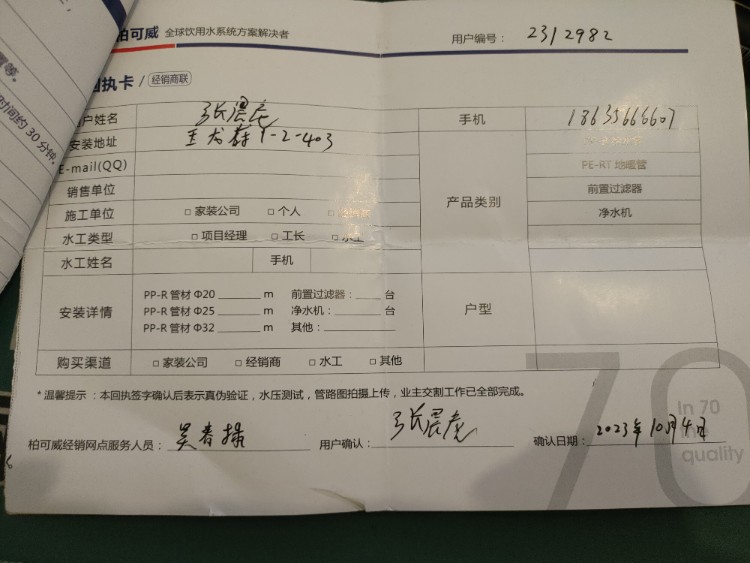 置等。
时间约 30 分钟。
柏可威 全球饮用水系统方案解决者 用户编号： 2312982
回执卡 / 经销商联
户姓名 张震虎 手机 18635666607
安装地址 王龙 1-2-403
E-mail(QQ) PE-RT 地暖管
销售单位 产品类别 前置过滤器
施工单位 □ 家装公司 □ 个人 □ 净水机
水工类型 □ 项目经理 □ 工长 □ 水工
水工姓名 手机
安装详情 PP-R 管材 Φ20 ______ m 前置过滤器：____ 台 户型
PP-R 管材 Φ25 ______ m 净水机：______ 台
PP-R 管材 Φ32 ______ m 其他：________
购买渠道 □ 家装公司 □ 经销商 □ 水工 □ 其他
* 温馨提示 ：本回执签字确认后表示真伪验证，水压测试，管路图拍摄上传，业主交割工作已全部完成。
柏可威经销网点服务人员： 吴春 用户确认： 张震虎 确认日期： 2023年10月4日
70
In 70
the
quality